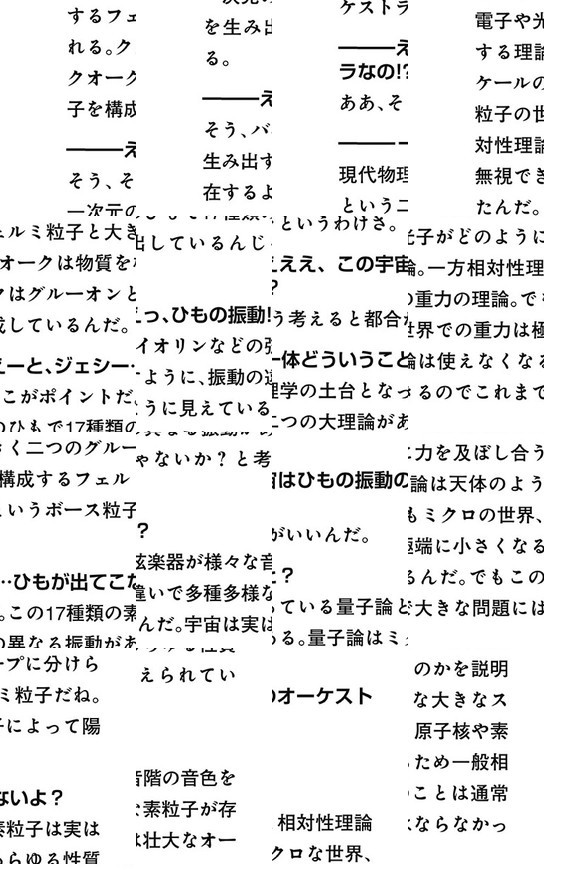 するフェ
れる。ク
クオーク
子を構成
―――え
そう、そ
一次元の
ルミ粒子と大き
オークは物質を
はグルーオンと
しているんだ。
えーと、ジェシー・
こがポイントだ
ひもで17種類の
く二つのグルー
構成するフェル
いうボース粒子
…ひもが出てこた
。この17種類の素
異なる振動があ
ープに分けら
ミ粒子だね。
によって陽
ないよ？
粒子は実は
らゆる性質
を生み出
る。
―――え
そう、バ
生み出す
在するよ
出しているんじ
っ、ひもの振動!
イオリンなどの弦
ように、振動の違
うに見えている
ゃないか？と考
？
弦楽器が様々な音
違いで多種多様な
んだ。宇宙は実は
えられてい
音階の音色を
素粒子が存
壮大なオー
ケストラ
―――え
ラなの!?
ああ、そ
―――
現代物理
という二
というわけさ。
ええ、この宇宙
?
う考えると都合が
一体どういうこと
理学の土台となっ
二つの大理論があ
宙はひもの振動の
がいいんだ。
と？
ている量子論と
る。量子論はミ
オーケスト
相対性理論
クロな世界、
電子や光
する理論
ケールの
粒子の世
対性理論
無視でき
たんだ。
子がどのように
。一方相対性理
重力の理論。で
世界での重力は極
論は使えなくなる
るのでこれまで
力を及ぼし合う
論は天体のよう
もミクロの世界、
極端に小さくなる
るんだ。でもこの
大きな問題には
のかを説明
な大きなス
原子核や素
ため一般相
ことは通常
ならなかっ